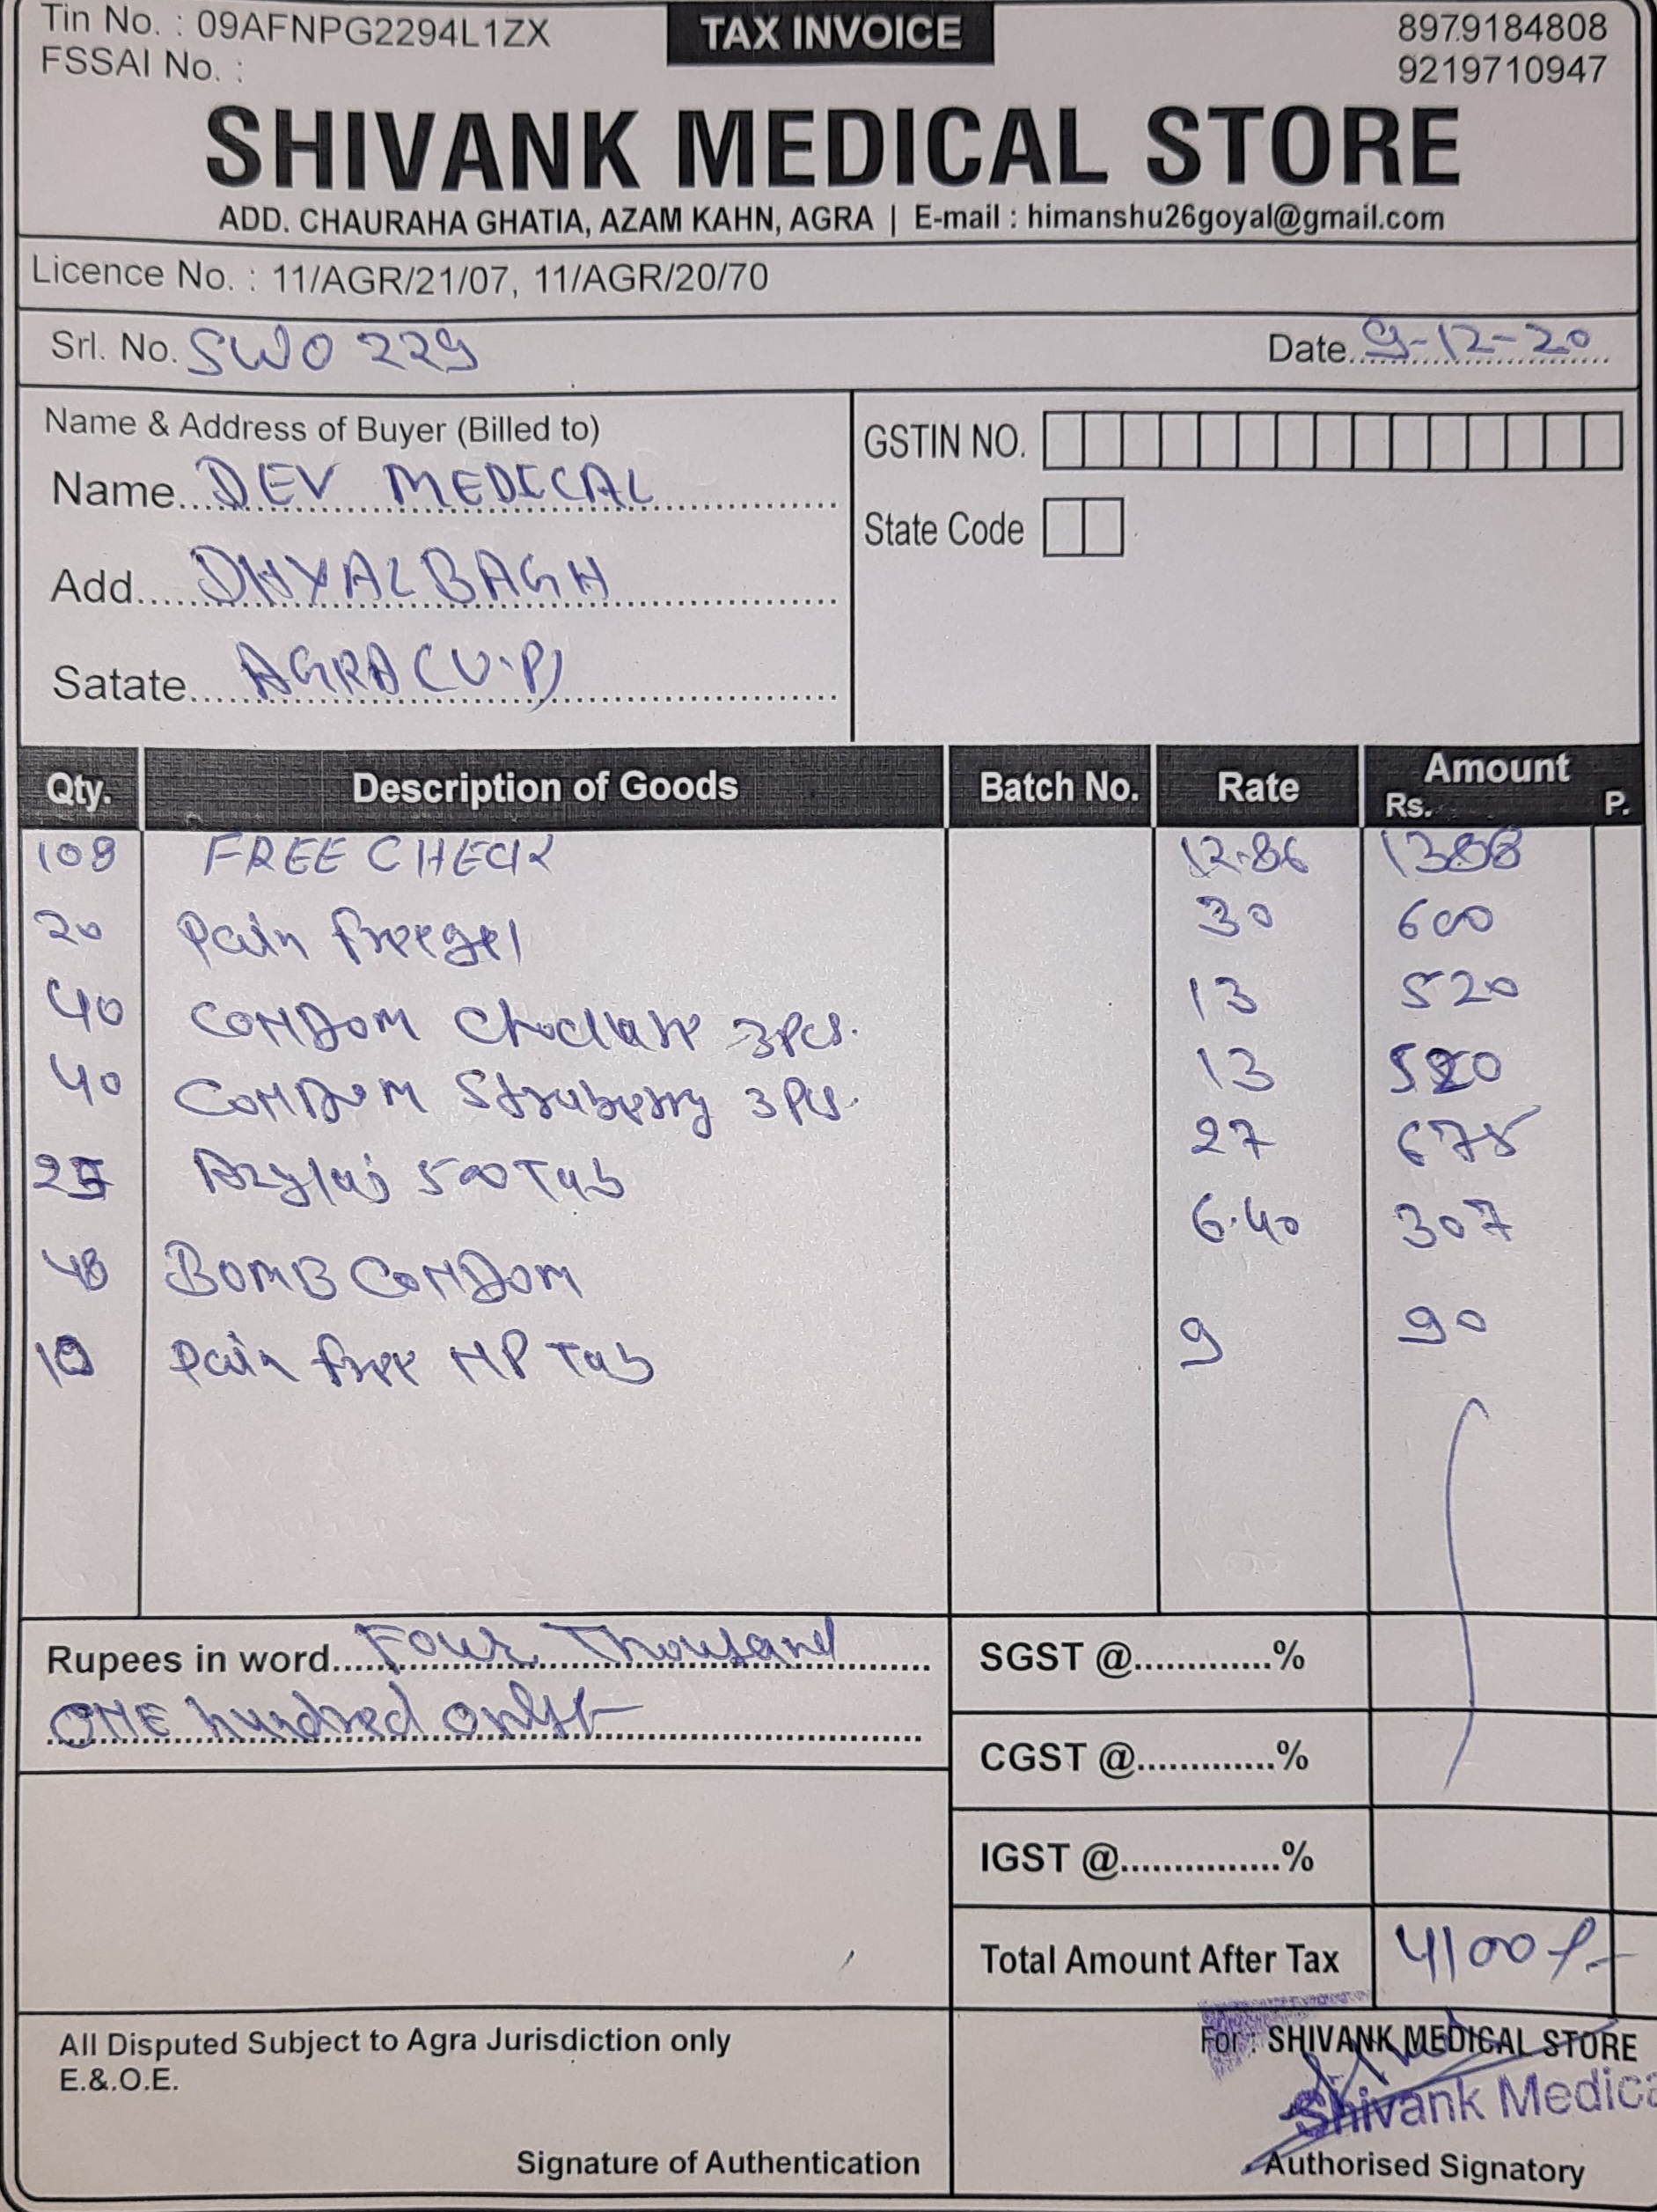 Tin No. : 09AFNPG2294L1ZX TAX INVOICE 8979184808
FSSAI No. : 9219710947
SHIVANK MEDICAL STORE
ADD. CHAURAHA GHATIA, AZAM KAHN, AGRA | E-mail : himanshu26goyal@gmail.com
Licence No. : 11/AGR/21/07, 11/AGR/20/70
Srl. No. SWO 229 Date 9-12-20
Name & Address of Buyer (Billed to)
GSTIN NO.
Name DEV MEDICAL
State Code
Add. DHYALBAGH
Satate AGRA (U.P)
Qty. Description of Goods Batch No. Rate Amount
Rs. P.
FREE CHECK 12.86
20 Pain freegel 30 600
40 CONDOM Choclate 3Pcs. 13 520
40 CONDOM Straberry 3Pcs. 13 520
25 500 Tab 27 675
48 BOMB CONDOM 6.40 307
10 Pain free MP Tab 9 90
Rupees in word Four Thousand
ONE hundred only
SGST @.............%
CGST @.............%
IGST @...............%
Total Amount After Tax 4100/-
All Disputed Subject to Agra Jurisdiction only
E.&.O.E.
For : SHIVANK MEDICAL STORE
Shivank Medica
Signature of Authentication
Authorised Signatory